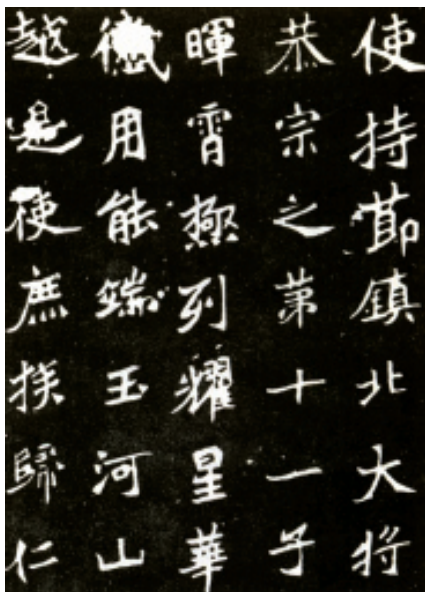 使持莭鎮北大将
恭宗之苐十一子
暉霄極列耀星華
用能端玉河山
越是使庶族歸仁